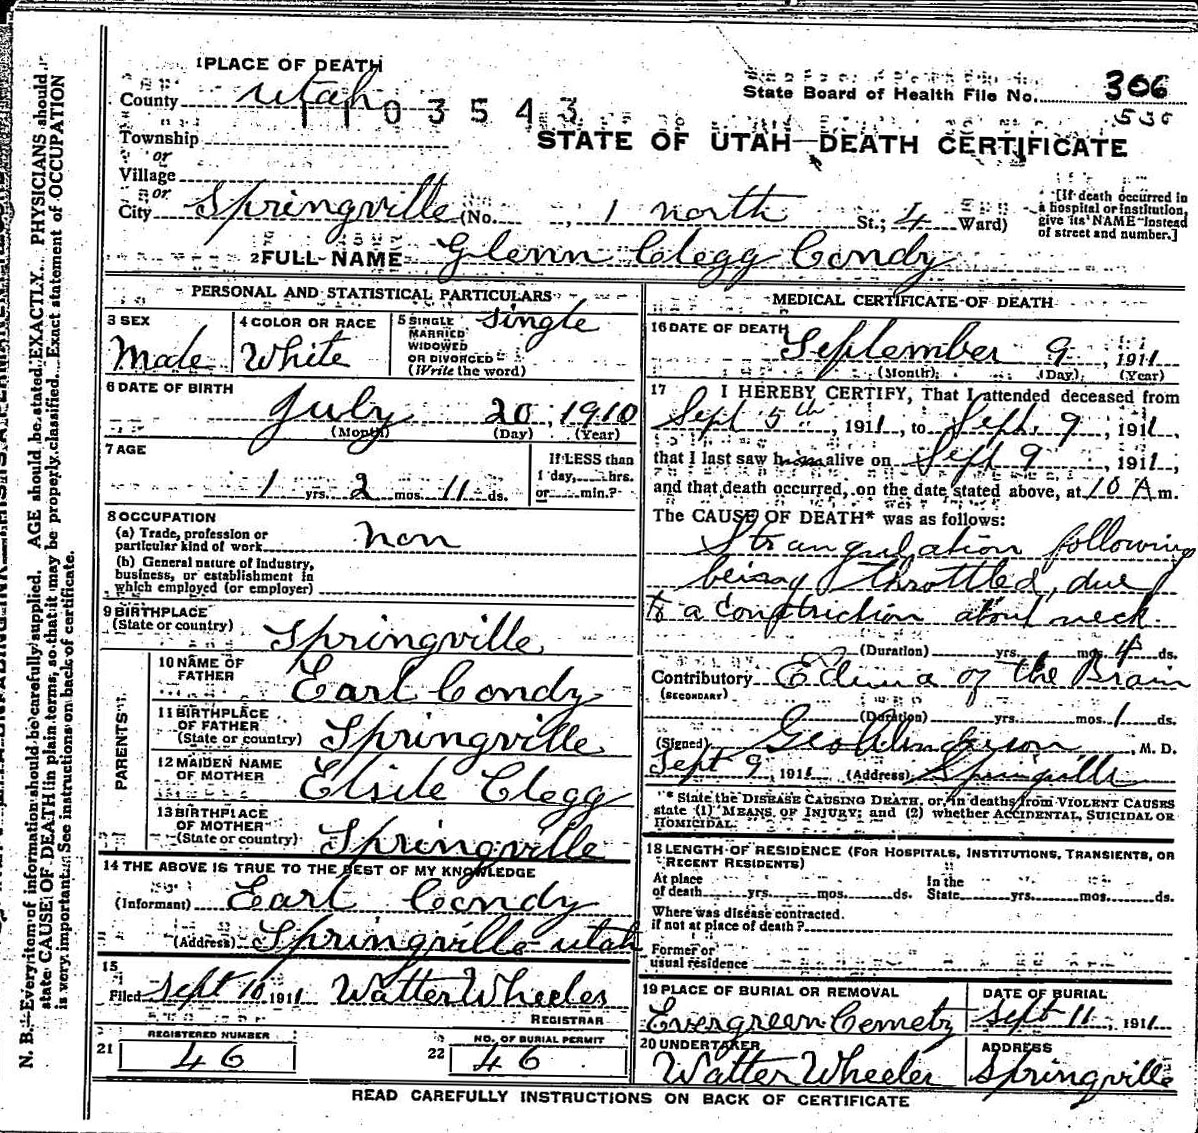 1 PLACE OF DEATH
County Utah
1103543
State Board of Health File No. 306
530
Township
or
Village
or
City Springville (No. , 1 north St.; 4 Ward)
STATE OF UTAH—DEATH CERTIFICATE
[If death occurred in
a hospital or institution,
give its NAME instead
of street and number.]
2 FULL NAME Glenn Clegg Condy
PERSONAL AND STATISTICAL PARTICULARS
3 SEX
Male
4 COLOR OR RACE
White
5 SINGLE
MARRIED
WIDOWED
OR DIVORCED
(Write the word)
Single
6 DATE OF BIRTH
July 20, 1910
(Month) (Day) (Year)
7 AGE
1 yrs. 2 mos. 11 ds.
If LESS than
1 day, hrs.
or min.?
8 OCCUPATION
(a) Trade, profession or
particular kind of work non
(b) General nature of Industry,
business, or establishment in
which employed (or employer)
9 BIRTHPLACE
(State or country) Springville
PARENTS
10 NAME OF
FATHER Earl Condy
11 BIRTHPLACE
OF FATHER
(State or country) Springville
12 MAIDEN NAME
OF MOTHER Elsile Clegg
13 BIRTHPLACE
OF MOTHER
(State or country) Springville
14 THE ABOVE IS TRUE TO THE BEST OF MY KNOWLEDGE
(Informant) Earl Condy
(Address) Springville Utah
15
Filed Sept 10 1911 Walter Wheeler
REGISTRAR
21 REGISTERED NUMBER
46
22 NO. OF BURIAL PERMIT
46
MEDICAL CERTIFICATE OF DEATH
16 DATE OF DEATH
September 9, 1911
(Month) (Day) (Year)
17 I HEREBY CERTIFY, That I attended deceased from
Sept 5th, 1911, to Sept. 9, 1911,
that I last saw him alive on Sept 9, 1911,
and that death occurred, on the date stated above, at 10 A m.
The CAUSE OF DEATH* was as follows:
Strangulation following
being throttled, due
to a constriction about neck.
(Duration) yrs. mos. 4 ds.
Contributory Edima of the Brain
(SECONDARY)
(Duration) yrs. mos. 1 ds.
(Signed) Geo , M. D.
Sept 9, 1911 (Address) Springville
* State the DISEASE CAUSING DEATH, or, in deaths from VIOLENT CAUSES
state (1) MEANS OF INJURY; and (2) whether ACCIDENTAL, SUICIDAL OR
HOMICIDAL.
18 LENGTH OF RESIDENCE (FOR HOSPITALS, INSTITUTIONS, TRANSIENTS, OR
RECENT RESIDENTS)
At place
of death yrs. mos. ds.
In the
State yrs. mos. ds.
Where was disease contracted.
if not at place of death?
Former or
usual residence
19 PLACE OF BURIAL OR REMOVAL
Evergreen Cemety
DATE OF BURIAL
Sept 11, 1911
20 UNDERTAKER
Walter Wheeler
ADDRESS
Springville
READ CAREFULLY INSTRUCTIONS ON BACK OF CERTIFICATE
N. B.—Every item of information should be carefully supplied. AGE should be stated EXACTLY. PHYSICIANS should
state CAUSE OF DEATH in plain terms, so that it may be properly classified. Exact statement of OCCUPATION
is very important. See instructions on back of certificate.